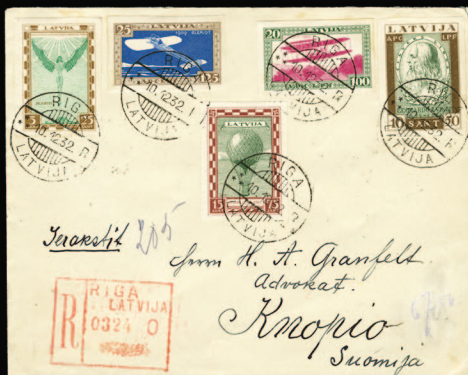 LATVIJA
5 25
25 1909 BLERIOT
25
LATVIJA
20
100
LATVIJA
APC LPF
10 SANT. 30
LATVIJA
15 75
RIGA
10.12.32
LATVIJA
RIGA
10.12.32
LATVIJA
RIGA
10.12.32
LATVIJA
RIGA
LATVIJA
RIGA
LATVIJA
Ierakstīt 205
Herrn H. A. Granfelt.
Advokat.
Knopio
Suomija
R
RIGA
LATVIJA
0324 O